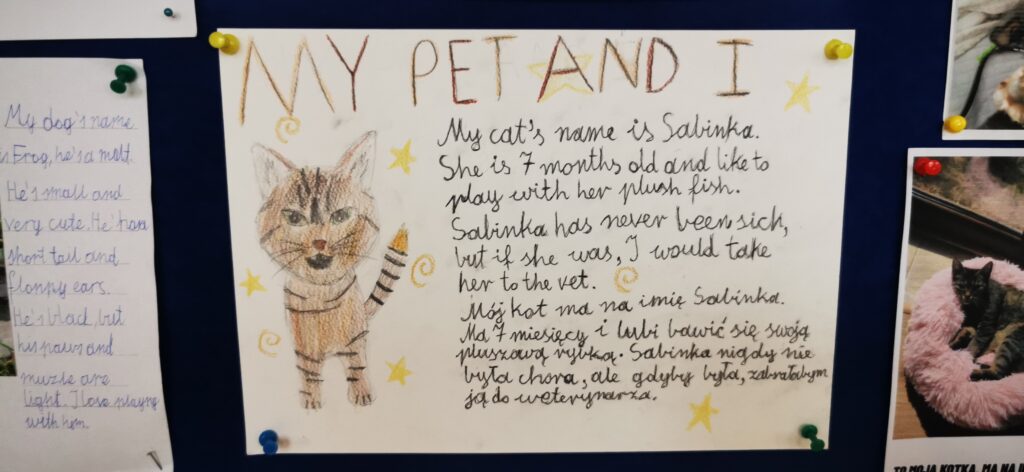 MY PET AND I
My cat's name is Sabinka.
She is 7 months old and like to
play with her plush fish.
Sabinka has never been sick,
but if she was, I would take
her to the vet.
Mój kot ma na imię Sabinka.
Ma 7 miesięcy i lubi bawić się swoją
pluszową rybką. Sabinka nigdy nie
była chora, ale gdyby była, zabrałabym
ją do weterynarza.
My dog's name
is Frog, he's a mutt.
He's small and
very cute. He has
short tail and
floppy ears.
He's black, but
his paws and
muzle are
light. I love playing
with him.
TO MOJA KOTKA. MA NA